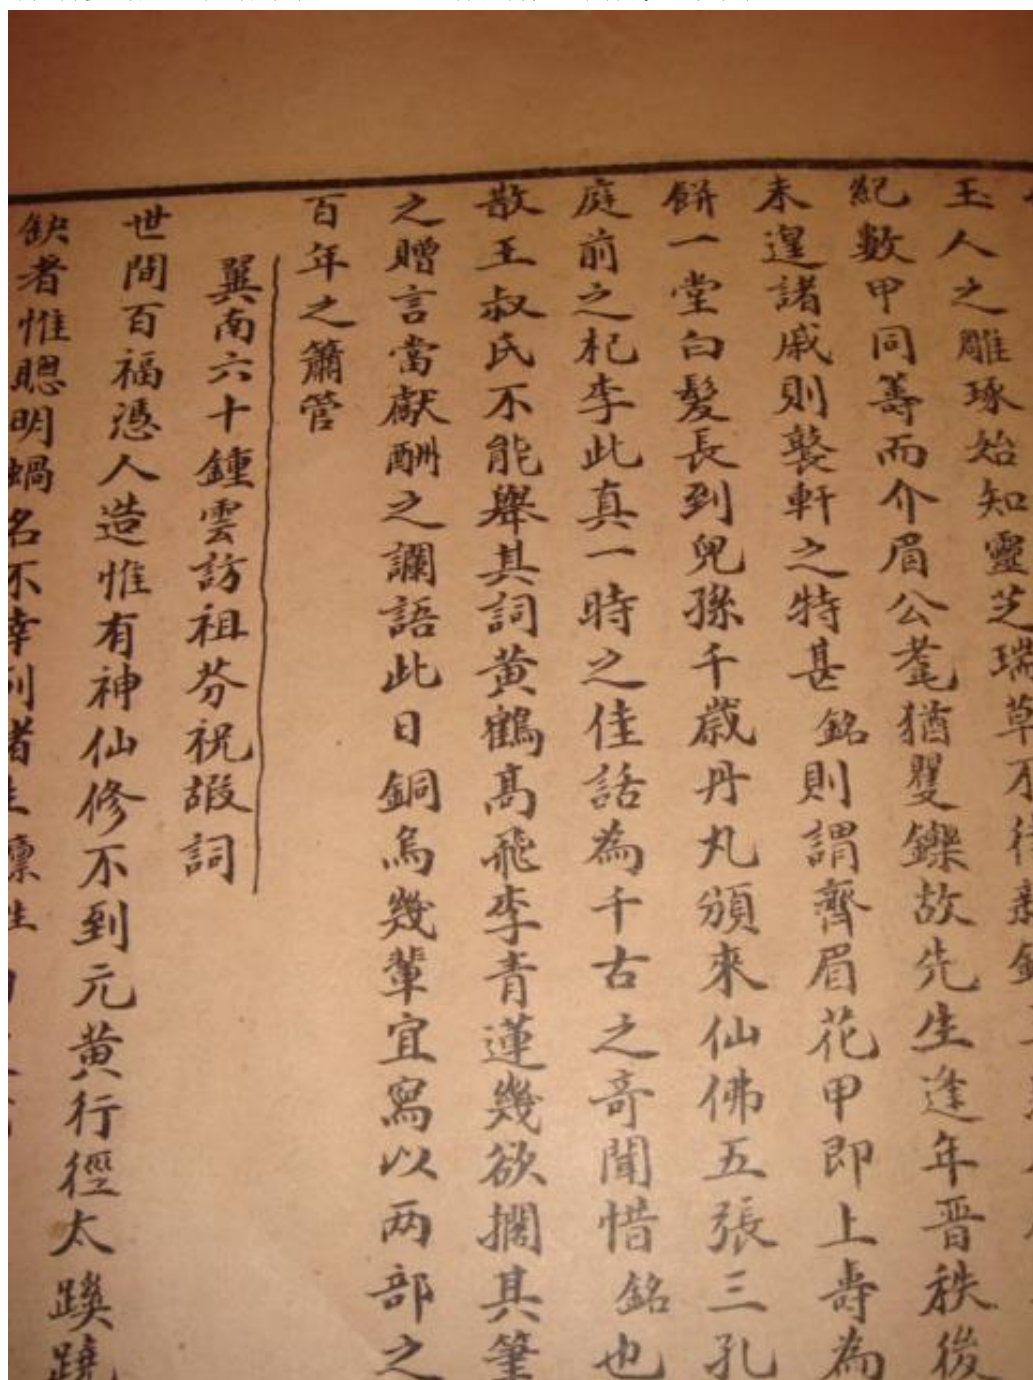 玉人之雕琢始知靈芝瑞草不待
紀數甲同籌而介眉公耄猶矍鑠故先生逢年晋秩後
未遑諸戚則褧軒之特甚銘則謂齊眉花甲即上壽為
餅一堂白髮長到兒孫千歲丹丸頒來仙佛五張三孔
庭前之杞李此真一時之佳話為千古之奇聞惜銘也
散王叔氏不能舉其詞黃鶴高飛李青蓮幾欲擱其筆
之贈言當獻酬之讕語此日銅烏幾輩宜寫以兩部之
百年之簫管
巽南六十鍾雲訪祖芬祝嘏詞
世間百福憑人造惟有神仙修不到元黃行徑太蹊蹺
缺者惟聰明蝸名不幸列者生